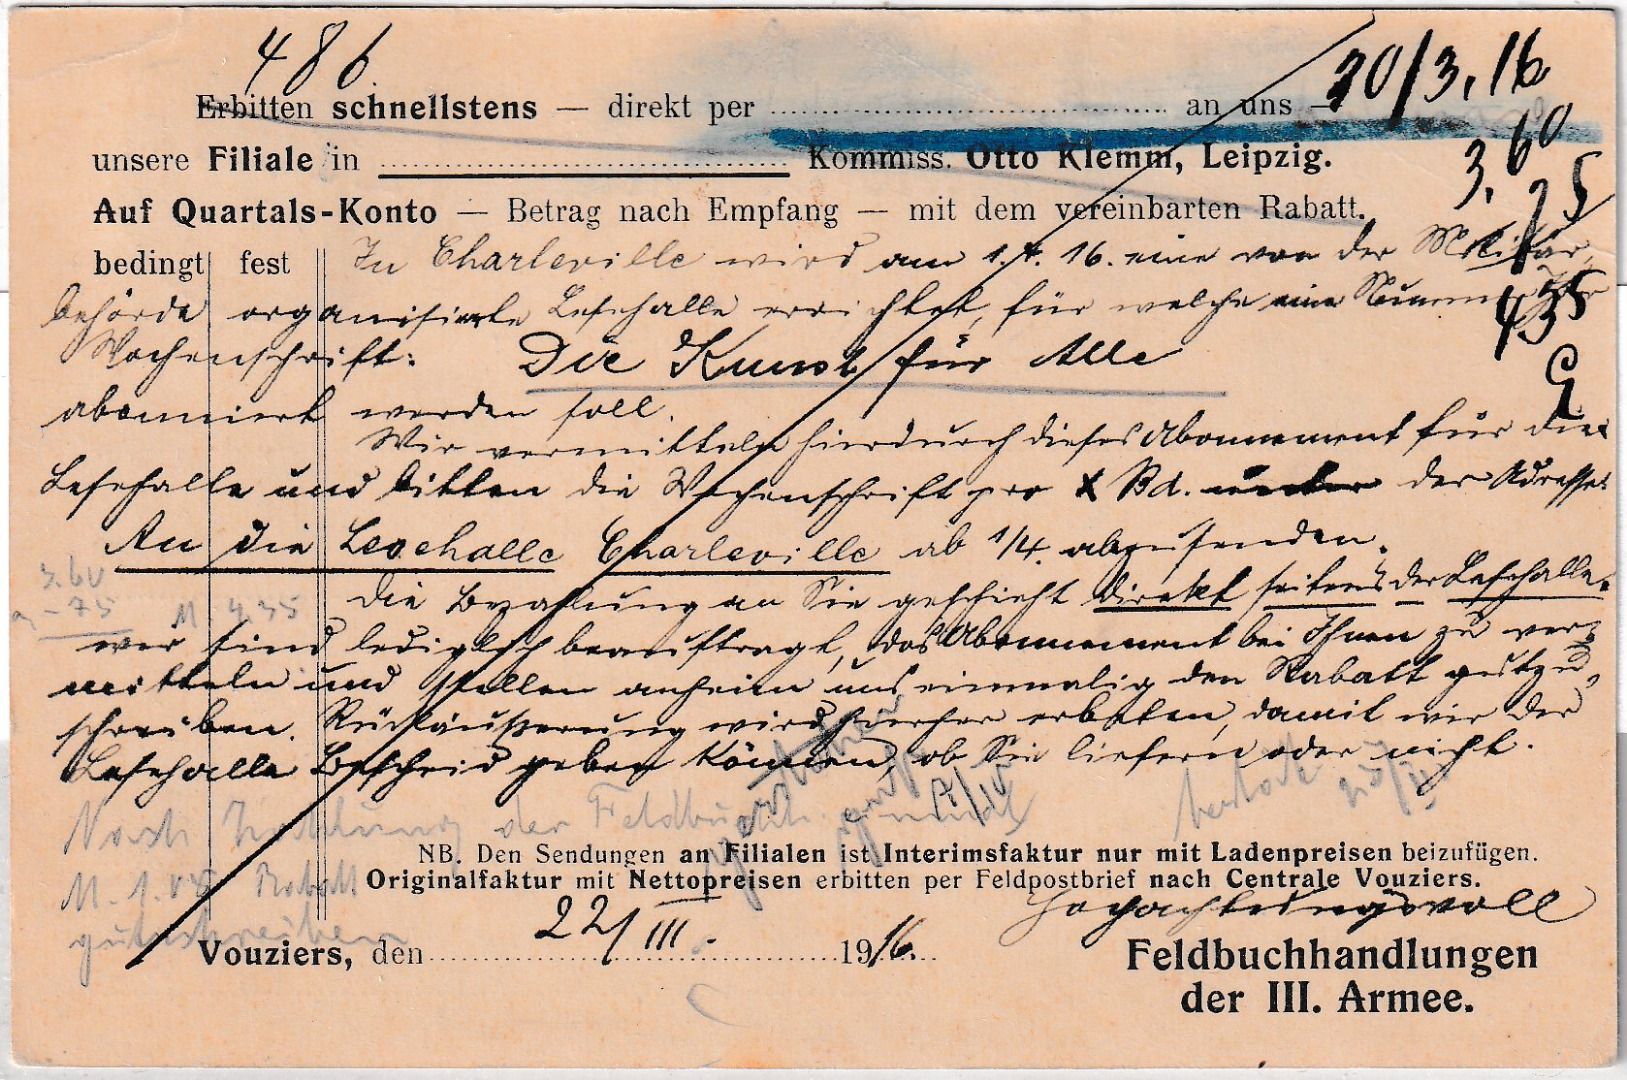 486.
30/3.16
Erbitten schnellstens — direkt per ........ an uns —
3.60
unsere Filiale in ........ Kommiss. Otto Klemm, Leipzig.
75
Auf Quartals-Konto — Betrag nach Empfang — mit dem vereinbarten Rabatt.
bedingt fest
In Charleville wird am 1.4.16. eine von der Militär-
4,35
behörde organisierte Lesehalle errichtet, für welche eine Nummer der
Wochenschrift: Die Kunst für Alle
abonniert werden soll.
Wir vermitteln hierdurch dieses Abonnement für die
Lesehalle und bitten die Wochenschrift pro X Bd. unter der Adresse:
An die Lesehalle Charleville ab 1/4. abzusenden.
3.60
Die Bezahlung an Sie geschieht direkt seitens der Lesehalle.
-75
M. 4.35
wir sind lediglich beauftragt, das Abonnement bei Ihnen zu ver-
mitteln und stellen anheim uns einmalig den Rabatt gutzu-
schreiben. Rückäußerung wird hierher erbeten, damit wir der
Lesehalle Bescheid geben können, ob Sie liefern oder nicht.
Nach Zahlung der Feldbuchh.
NB. Den Sendungen an Filialen ist Interimsfaktur nur mit Ladenpreisen beizufügen.
M. 1.05 Rabatt
Originalfaktur mit Nettopreisen erbitten per Feldpostbrief nach Centrale Vouziers.
gutschreiben
Hochachtungsvoll
Vouziers, den 22/III. 1916.
Feldbuchhandlungen
der III. Armee.